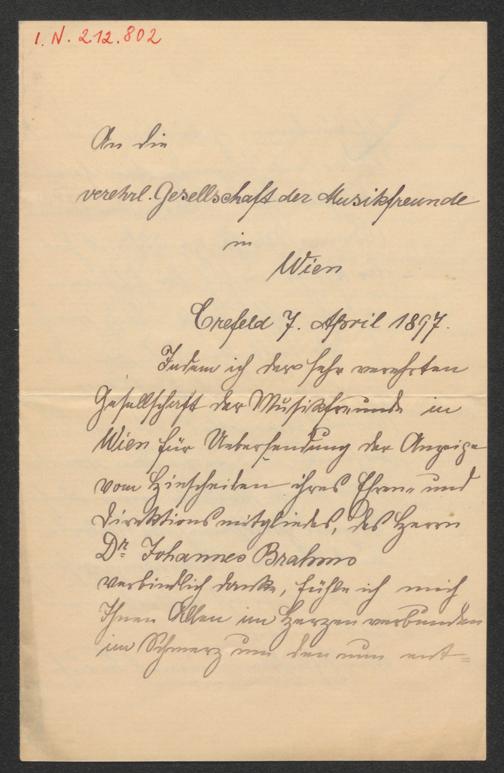 I. N. 212.802
An die
verehrl. Gesellschaft der Musikfreunde
in
Wien
Crefeld 7. April 1897.
Indem ich der sehr verehrten
Gesellschaft der Musikfreunde in
Wien für Uebersendung der Anzeige
vom Hinscheiden ihres Ehren- und
Direktionsmitgliedes, des Herrn
Dr. Johannes Brahms
verbindlich danke, fühle ich mich
Ihnen Allen im Herzen verbunden
im Schmerz um den nun ent=